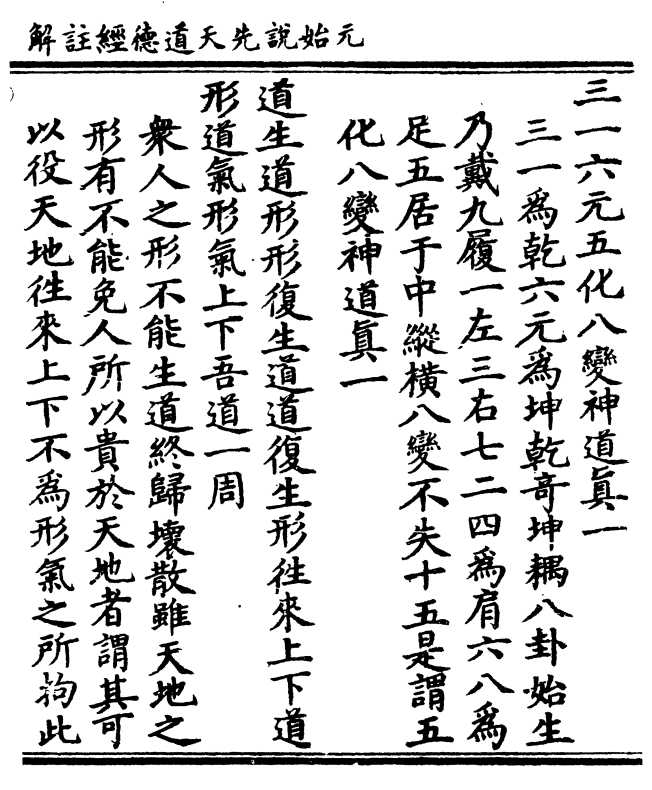 元始說先天道德經註解
三一六元五化八變神道眞一
三一爲乾六元爲坤乾竒坤耦八卦始生
乃戴九履一左三右七二四爲肩六八爲
足五居于中縱橫八變不失十五是謂五
化八變神道眞一
道生道形形復生道道復生形徃來上下道
形道氣形氣上下吾道一周
衆人之形不能生道終歸壞散雖天地之
形有不能免人所以貴於天地者謂其可
以役天地徃來上下不爲形氣之所拘此